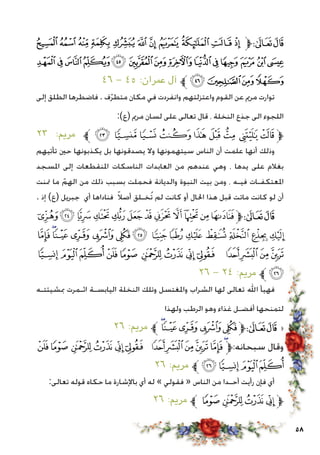 قال تعالى: ﴿إِذْ قَالَتِ الْمَلَائِكَةُ يَا مَرْيَمُ إِنَّ اللَّهَ يُبَشِّرُكِ بِكَلِمَةٍ مِنْهُ اسْمُهُ الْمَسِيحُ
عِيسَى ابْنُ مَرْيَمَ وَجِيهًا فِي الدُّنْيَا وَالْآخِرَةِ وَمِنَ الْمُقَرَّبِينَ ﴿٤٥﴾ وَيُكَلِّمُ النَّاسَ فِي الْمَهْدِ
وَكَهْلًا وَمِنَ الصَّالِحِينَ ﴿٤٦﴾﴾ آل عمران: ٤٥ - ٤٦
توارت مريم عن القوم واعتزلتهم وانفردت في مكان متطرّف . فاضطرها الطلق إلى
اللجوء الى جذع النخلة . قال تعالى على لسان مريم (ع):
﴿قَالَتْ يَا لَيْتَنِي مِتُّ قَبْلَ هَذَا وَكُنْتُ نَسْيًا مَنْسِيًّا ﴿٢٣﴾﴾ مريم: ٢٣
وذلك أنها علمت أن الناس سيتهمونها ولا يصدقونها بل يكذبونها حين تأتيهم
بغلام على يدها . وهي عندهم من العابدات الناسكات المنقطعات إلى المسجد
المعتكفات فيه . ومن بيت النبوة والديانة فحملت بسبب ذلك من الهمّ ما تمنت
أن لو كانت ماتت قبل هذا الحال أو كانت لم تُخلق أصلاً فناداها أي جبريل (ع) إذ .
قال تعالى: ﴿فَنَادَاهَا مِنْ تَحْتِهَا أَلَّا تَحْزَنِي قَدْ جَعَلَ رَبُّكِ تَحْتَكِ سَرِيًّا ﴿٢٤﴾ وَهُزِّي
إِلَيْكِ بِجِذْعِ النَّخْلَةِ تُسَاقِطْ عَلَيْكِ رُطَبًا جَنِيًّا ﴿٢٥﴾ فَكُلِي وَاشْرَبِي وَقَرِّي عَيْنًا فَإِمَّا
تَرَيِنَّ مِنَ الْبَشَرِ أَحَدًا فَقُولِي إِنِّي نَذَرْتُ لِلرَّحْمَنِ صَوْمًا فَلَنْ أُكَلِّمَ الْيَوْمَ إِنْسِيًّا
﴿٢٦﴾﴾ مريم: ٢٤ - ٢٦
فهيأ الله تعالى لها الشراب والمغتسل وتلك النخلة اليابسة اثمرت بمشيئته
لتمنحها أفضل غذاء وهو الرطب ولهذا
قال تعالى: ﴿فَكُلِي وَاشْرَبِي وَقَرِّي عَيْنًا﴾ مريم: ٢٦
وقال سبحانه: ﴿فَإِمَّا تَرَيِنَّ مِنَ الْبَشَرِ أَحَدًا فَقُولِي إِنِّي نَذَرْتُ لِلرَّحْمَنِ صَوْمًا فَلَنْ
أُكَلِّمَ الْيَوْمَ إِنْسِيًّا ﴿٢٦﴾﴾ مريم: ٢٦
أي فإن رأيت أحدا من الناس « فقولي » له أي بالإشارة ما حكاه قوله تعالى:
﴿إِنِّي نَذَرْتُ لِلرَّحْمَنِ صَوْمًا﴾ مريم: ٢٦
٥٨